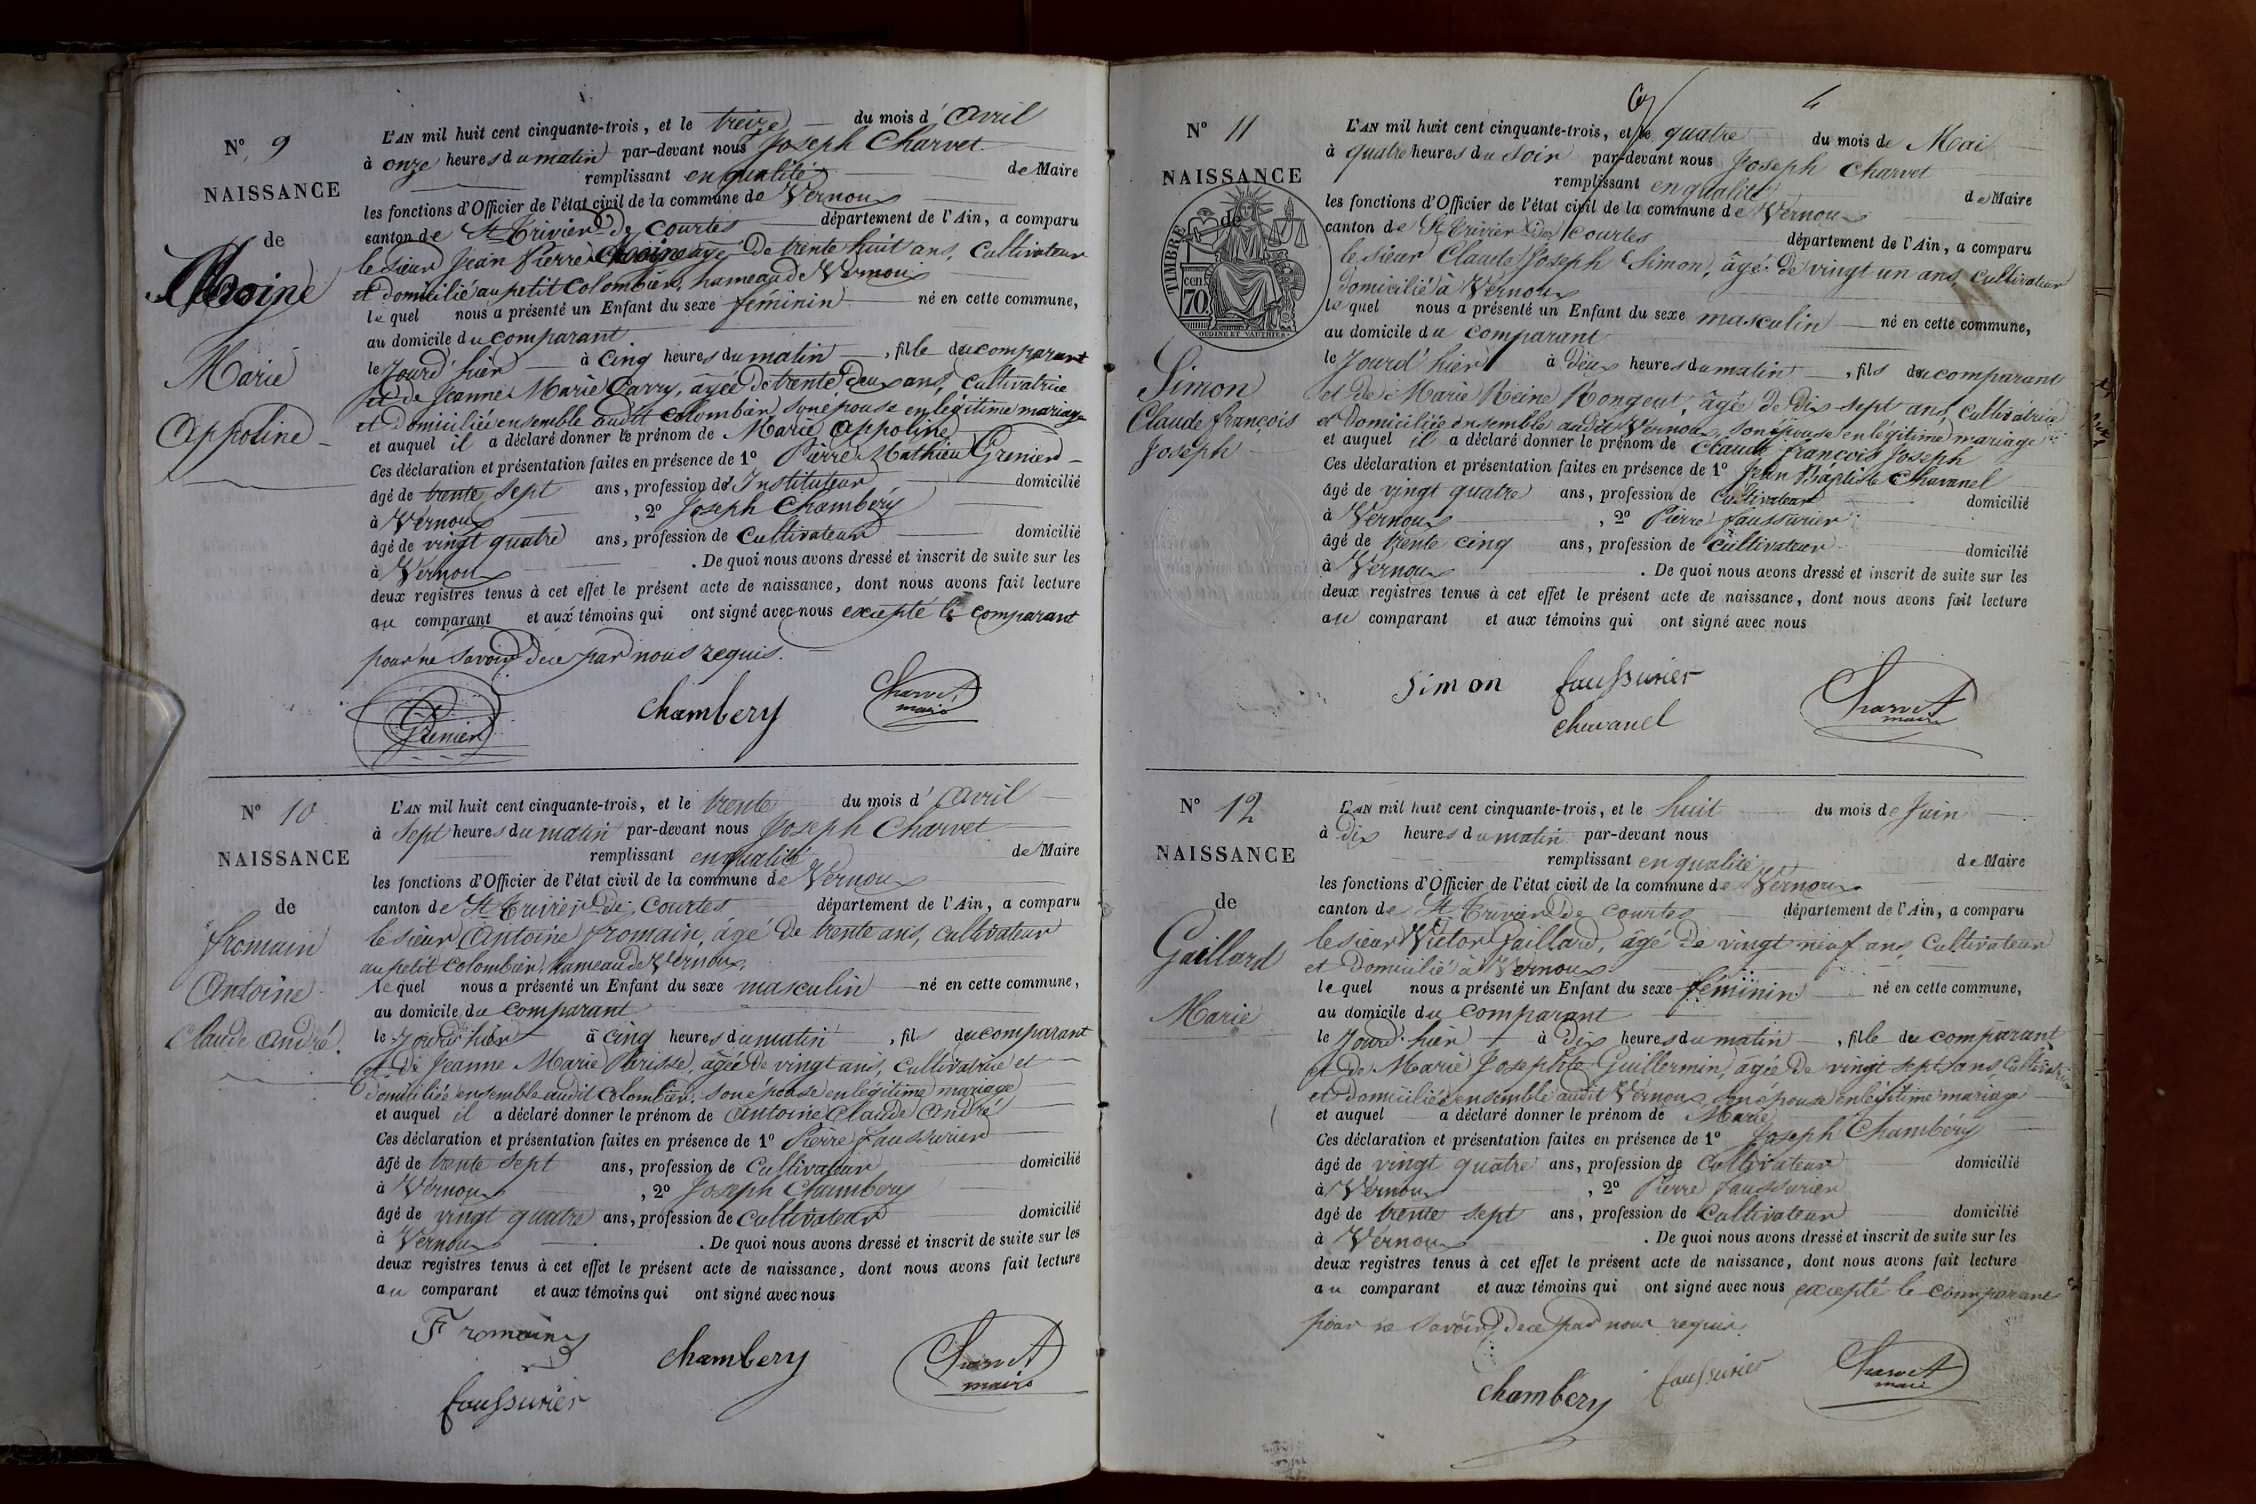 N° 9
NAISSANCE
de
Moine
Marie
Appoline
L'AN mil huit cent cinquante-trois, et le treize du mois d'Avril
à onze heures du matin par-devant nous Joseph Charvet
remplissant en qualité de Maire
les fonctions d'Officier de l'état civil de la commune de Vernoux
canton de St Trivier de Courtes département de l'Ain, a comparu
le sieur Jean Pierre Moine agé De trente huit ans, Cultivateur
et domicilié au petit Colombier, hameau de Vernoux
lequel nous a présenté un Enfant du sexe féminin né en cette commune,
au domicile du comparant
le Jourd'hier à Cinq heures du matin, fille du comparant
et de Jeanne Marie Carry, âgée de trente deux ans, Cultivatrice
et domiciliée ensemble audit Colombier, son épouse en légitime mariage
et auquel il a déclaré donner le prénom de Marie Appoline
Ces déclaration et présentation faites en présence de 1° Pierre Mathieu Grenier
âgé de trente sept ans, profession d'Instituteur domicilié
à Vernoux, 2° Joseph Chambéry
âgé de vingt quatre ans, profession de Cultivateur domicilié
à Vernoux. De quoi nous avons dressé et inscrit de suite sur les
deux registres tenus à cet effet le présent acte de naissance, dont nous avons fait lecture
au comparant et aux témoins qui ont signé avec nous excepté le comparant
pour ne savoir de ce par nous requis.
Grenier Chambery Charvet
maire
N° 10
NAISSANCE
de
fromain
Antoine
Claude André.
L'AN mil huit cent cinquante-trois, et le trente du mois d'Avril
à Sept heures du matin par-devant nous Joseph Charvet
remplissant en qualité de Maire
les fonctions d'Officier de l'état civil de la commune de Vernoux
canton de St Trivier de Courtes département de l'Ain, a comparu
le sieur Antoine fromain, âgé De trente ans, cultivateur
au petit Colombier, hameau de Vernoux,
lequel nous a présenté un Enfant du sexe masculin né en cette commune,
au domicile du comparant
le Jourd'hier à cinq heures du matin, fils du comparant
et de Jeanne Marie Parisse, âgée de vingt ans, Cultivatrice et
domiciliée ensemble audit Colombier, son épouse en légitime mariage
et auquel il a déclaré donner le prénom de Antoine Claude André
Ces déclaration et présentation faites en présence de 1° Pierre faussurier
âgé de trente sept ans, profession de Cultivateur domicilié
à Vernoux, 2° Joseph Chambery
âgé de vingt quatre ans, profession de Cultivateur domicilié
à Vernoux. De quoi nous avons dressé et inscrit de suite sur les
deux registres tenus à cet effet le présent acte de naissance, dont nous avons fait lecture
au comparant et aux témoins qui ont signé avec nous
Fromain Chambery Charvet
maire
faussurier
4
N° 11
NAISSANCE
de
TIMBRE
cen
70.
OUDINÉ F. VAUTHIER
Simon
Claude françois
Joseph
L'AN mil huit cent cinquante-trois, et le quatre du mois de Mai
à quatre heures du soir par-devant nous Joseph Charvet
remplissant en qualité de Maire
les fonctions d'Officier de l'état civil de la commune de Vernoux
canton de St Trivier de Courtes département de l'Ain, a comparu
le sieur Claude Joseph Simon, âgé de vingt un ans, Cultivateur
domicilié à Vernoux
lequel nous a présenté un Enfant du sexe masculin né en cette commune,
au domicile du comparant
le Jourd'hier à deux heures du matin, fils du comparant
et de Marie Reine Rongeut, âgée de dix sept ans, Cultivatrice
et Domiciliée ensemble audit Vernoux, son épouse en légitime mariage
et auquel il a déclaré donner le prénom de Claude françois Joseph
Ces déclaration et présentation faites en présence de 1° Jean Baptiste Chavanel
âgé de vingt quatre ans, profession de Cultivateur domicilié
à Vernoux, 2° Pierre faussurier
âgé de trente cinq ans, profession de cultivateur domicilié
à Vernoux. De quoi nous avons dressé et inscrit de suite sur les
deux registres tenus à cet effet le présent acte de naissance, dont nous avons fait lecture
au comparant et aux témoins qui ont signé avec nous
Simon faussurier Charvet
maire
chavanel
N° 12
NAISSANCE
de
Gaillard
Marie
L'AN mil huit cent cinquante-trois, et le huit du mois de Juin
à dix heures du matin par-devant nous
remplissant en qualité de Maire
les fonctions d'Officier de l'état civil de la commune de Vernoux
canton de St Trivier de Courtes département de l'Ain, a comparu
le sieur Victor Gaillard, âgé De vingt neuf ans, Cultivateur
et Domicilié à Vernoux
lequel nous a présenté un Enfant du sexe féminin né en cette commune,
au domicile du comparant
le Jourd'hier à dix heures du matin, fille du comparant
et de Marie Josephte Guillermin, âgée De vingt sept ans, Cultivatrice
et Domiciliée ensemble audit Vernoux, son épouse en légitime mariage
et auquel a déclaré donner le prénom de Marie
Ces déclaration et présentation faites en présence de 1° Joseph Chambéry
âgé de vingt quatre ans, profession de Cultivateur domicilié
à Vernoux, 2° Pierre faussurier
âgé de trente sept ans, profession de Cultivateur domicilié
à Vernoux. De quoi nous avons dressé et inscrit de suite sur les
deux registres tenus à cet effet le présent acte de naissance, dont nous avons fait lecture
au comparant et aux témoins qui ont signé avec nous excepté le comparant
pour ne savoir de ce par nous requis.
Chambery faussurier Charvet
maire